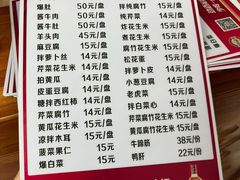 爆肚 50元/盘 拌腐竹 14元/盘
酱牛肉 50元/盘 炖芹菜 14元/盘
酱牛肚 50元/盘 花生米 15元/盘
羊头肉 45元/盘 煮花生米 14元/盘
麻豆腐 15元/盘 腐竹花生米 15元/盘
拌萝卜丝 14元/盘 松花蛋 15元/盘
芹菜花生米 14元/盘 拌萝卜皮 14元/盘
拍黄瓜 14元/盘 小葱豆腐 14元/盘
皮蛋豆腐 14元/盘 老虎菜 15元/盘
糖拌西红柿 14元/盘 拌白菜心 14元/盘
芹菜腐竹 15元/盘 黄瓜腐竹 15元/盘
黄瓜花生米 14元/盘 芹菜腐竹花生米 15元/盘
凉拌木耳 15元/盘 黄瓜腐竹花生米 15元/盘
菠菜果仁 15元 牛蹄筋 38元/份
爆白菜 15元 鸭肝 22元/份